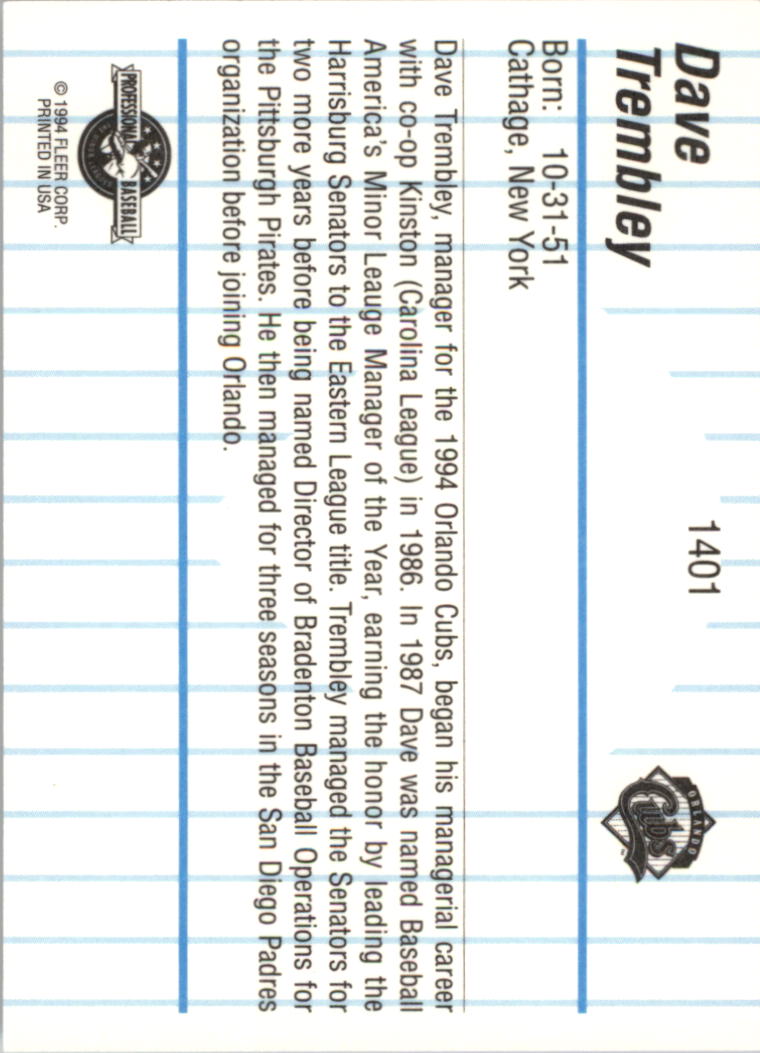 Dave
Trembley
1401
ORLANDO
Cubs
Born: 10-31-51
Cathage, New York
Dave Trembley, manager for the 1994 Orlando Cubs, began his managerial career
with co-op Kinston (Carolina League) in 1986. In 1987 Dave was named Baseball
America's Minor Leauge Manager of the Year, earning the honor by leading the
Harrisburg Senators to the Eastern League title. Trembley managed the Senators for
two more years before being named Director of Bradenton Baseball Operations for
the Pittsburgh Pirates. He then managed for three seasons in the San Diego Padres
organization before joining Orlando.
PROFESSIONAL BASEBALL
© 1994 FLEER CORP.
PRINTED IN USA